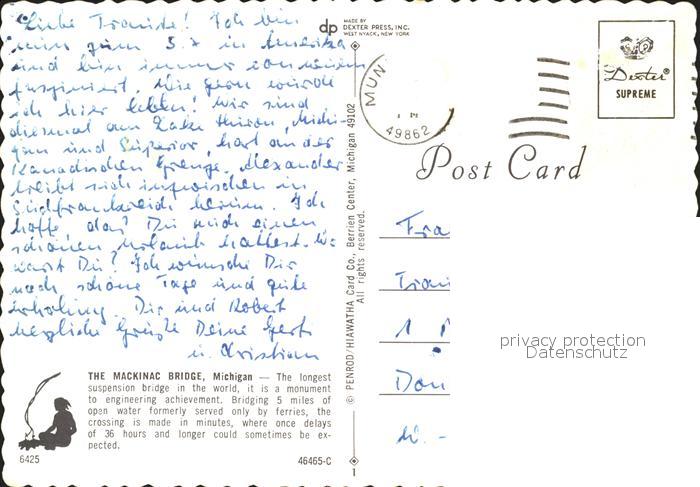 Liebe Traude! Ich bin
nun zum 5. x in Amerika
und bin immer von neuem
fasziniert. Wie gern würde
ich hier leben! Wir sind
diesmal am Lake Huron, Michi-
gan und Superior, hart an der
Kanadischen Grenze. Alexander
treibt sich inzwischen in
Südfrankreich herum. Ich
hoffe, daß Du auch einen
schönen Urlaub hattest. Wo
warst Du? Ich wünsche Dir
noch schöne Tage und gute
Erholung. Dir und Robert
herzliche Grüße Deine Gert
u. Christian
THE MACKINAC BRIDGE, Michigan — The longest
suspension bridge in the world, it is a monument
to engineering achievement. Bridging 5 miles of
open water formerly served only by ferries, the
crossing is made in minutes, where once delays
of 36 hours and longer could sometimes be ex-
pected.
6425
46465-C
dp MADE BY
DEXTER PRESS, INC.
WEST NYACK, NEW YORK
© PENROD/HIAWATHA Card Co., Berrien Center, Michigan 49102
All rights reserved.
1
MUN
49862
Dexter®
SUPREME
Post Card
Fra
Trau
1
Don
W. -
privacy protection
Datenschutz